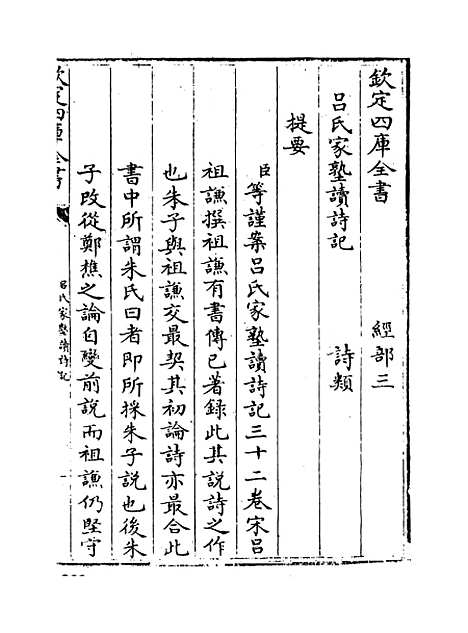 欽定四庫全書　經部三
呂氏家塾讀詩記　詩類
提要
臣等謹案呂氏家塾讀詩記三十二卷宋呂
祖謙撰祖謙有書傳已著録此其說詩之作
也朱子與祖謙交最契其初論詩亦最合此
書中所謂朱氏曰者即所採朱子說也後朱
子改從鄭樵之論自變前說而祖謙仍堅守
欽定四庫全書
呂氏家塾讀詩記
一